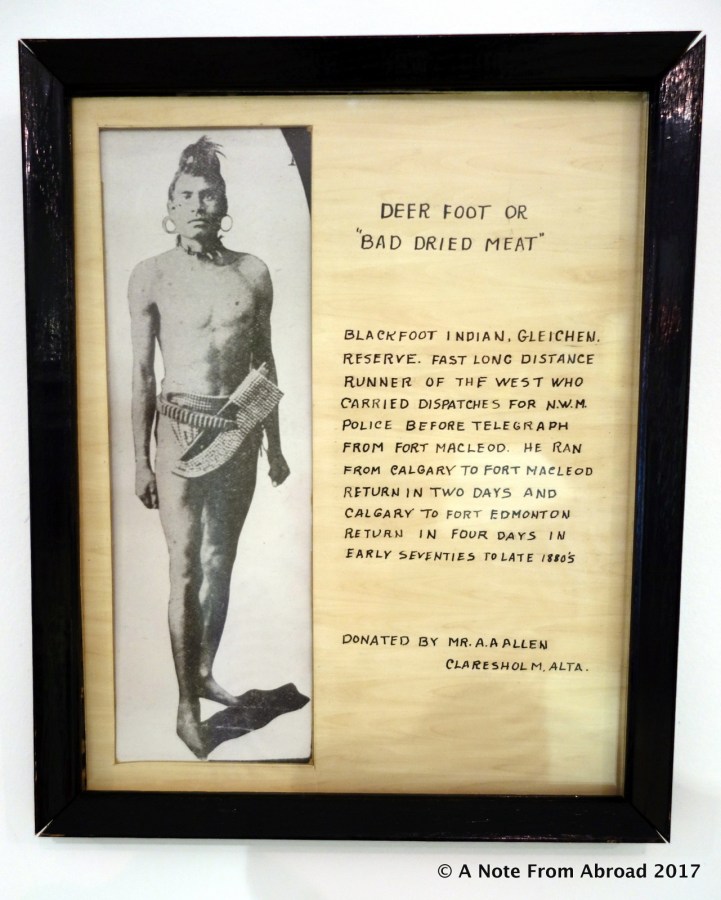 DEER FOOT OR
"BAD DRIED MEAT"
BLACKFOOT INDIAN, GLEICHEN.
RESERVE. FAST LONG DISTANCE
RUNNER OF THE WEST WHO
CARRIED DISPATCHES FOR N.W.M.
POLICE BEFORE TELEGRAPH
FROM FORT MACLEOD. HE RAN
FROM CALGARY TO FORT MACLEOD
RETURN IN TWO DAYS AND
CALGARY TO FORT EDMONTON
RETURN IN FOUR DAYS IN
EARLY SEVENTIES TO LATE 1880'S
DONATED BY MR. A.A ALLEN
CLARESHOLM, ALTA.
© A Note From Abroad 2017